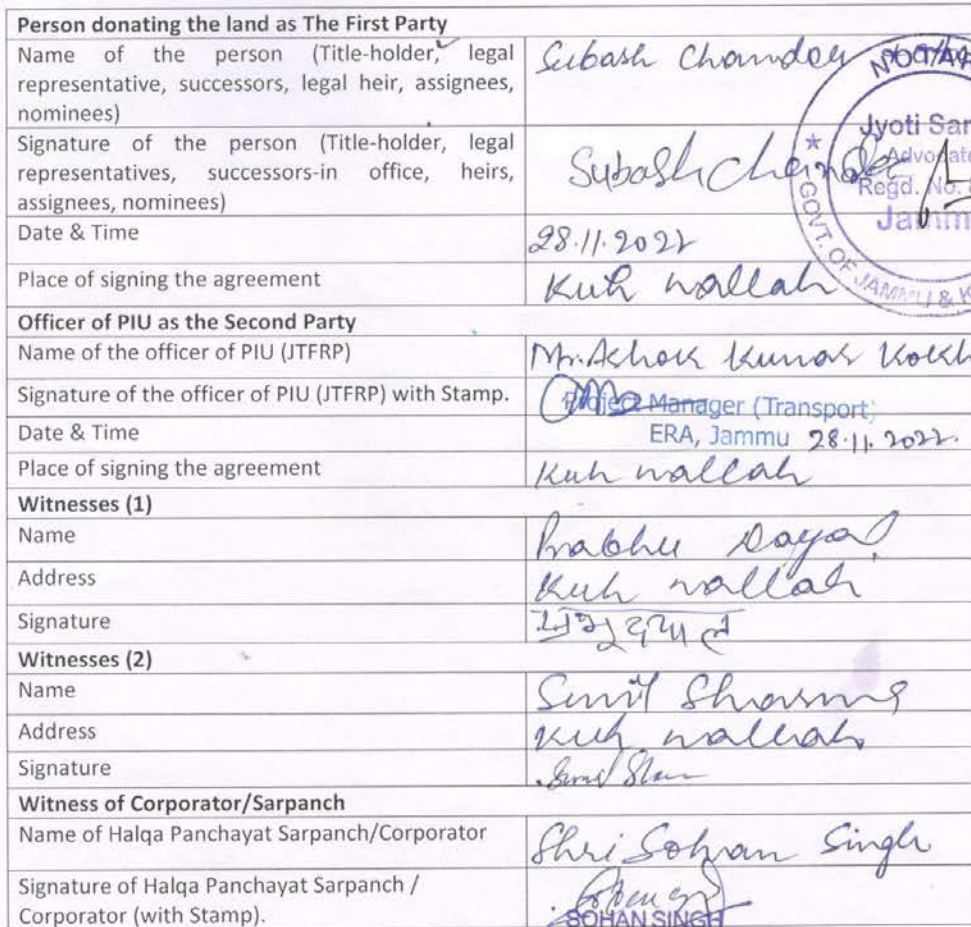 Person donating the land as The First Party
Name of the person (Title-holder, legal representative, successors, legal heir, assignees, nominees) Subash Chander
NOTAR
Jyoti Sar
Advocate
Regd. No.
Jamm
GOVT. OF JAMMU & K
Signature of the person (Title-holder, legal representatives, successors-in office, heirs, assignees, nominees) Subash Chander
Date & Time 28.11.2022
Place of signing the agreement Kuh wallah
Officer of PIU as the Second Party
Name of the officer of PIU (JTFRP) Mr. Ashok Kumar
Signature of the officer of PIU (JTFRP) with Stamp. Project Manager (Transport)
ERA, Jammu
Date & Time 28.11.2022.
Place of signing the agreement Kuh wallah
Witnesses (1)
Name Prabhu Dayal
Address Kuh wallah
Signature प्रभु दयाल
Witnesses (2)
Name Sunil Sharma
Address Kuh wallah
Signature
Witness of Corporator/Sarpanch
Name of Halqa Panchayat Sarpanch/Corporator Shri Sohan Singh
Signature of Halqa Panchayat Sarpanch / Corporator (with Stamp). SOHAN SINGH